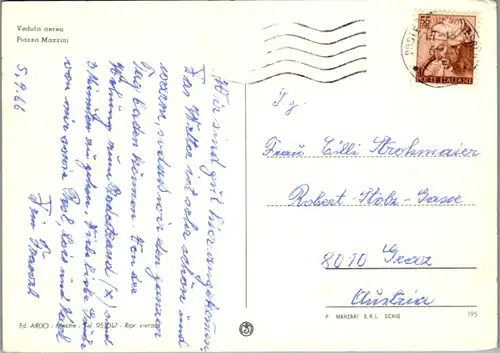 Veduta aerea
Piazza Mazzini
5.9.66
Wir sind gut hier angekommen.
Das Wetter ist sehr schön und
warm, sodaß wir den ganzen
Tag baden können. Von der
Wohnung zum Badestrand (x) sind
3 Minuten zu gehen. Viele liebe Grüße
von mir sowie
und
Dein
POSTE ITALIANE
I. g.
Frau Cilli Strohmaier
Robert-Stolz-Gasse
8010 Graz
Austria
Ed. ARDO - Mestre - Tel.
- Ripr. vietata
P. MARZARI S.R.L. SCHIO
195